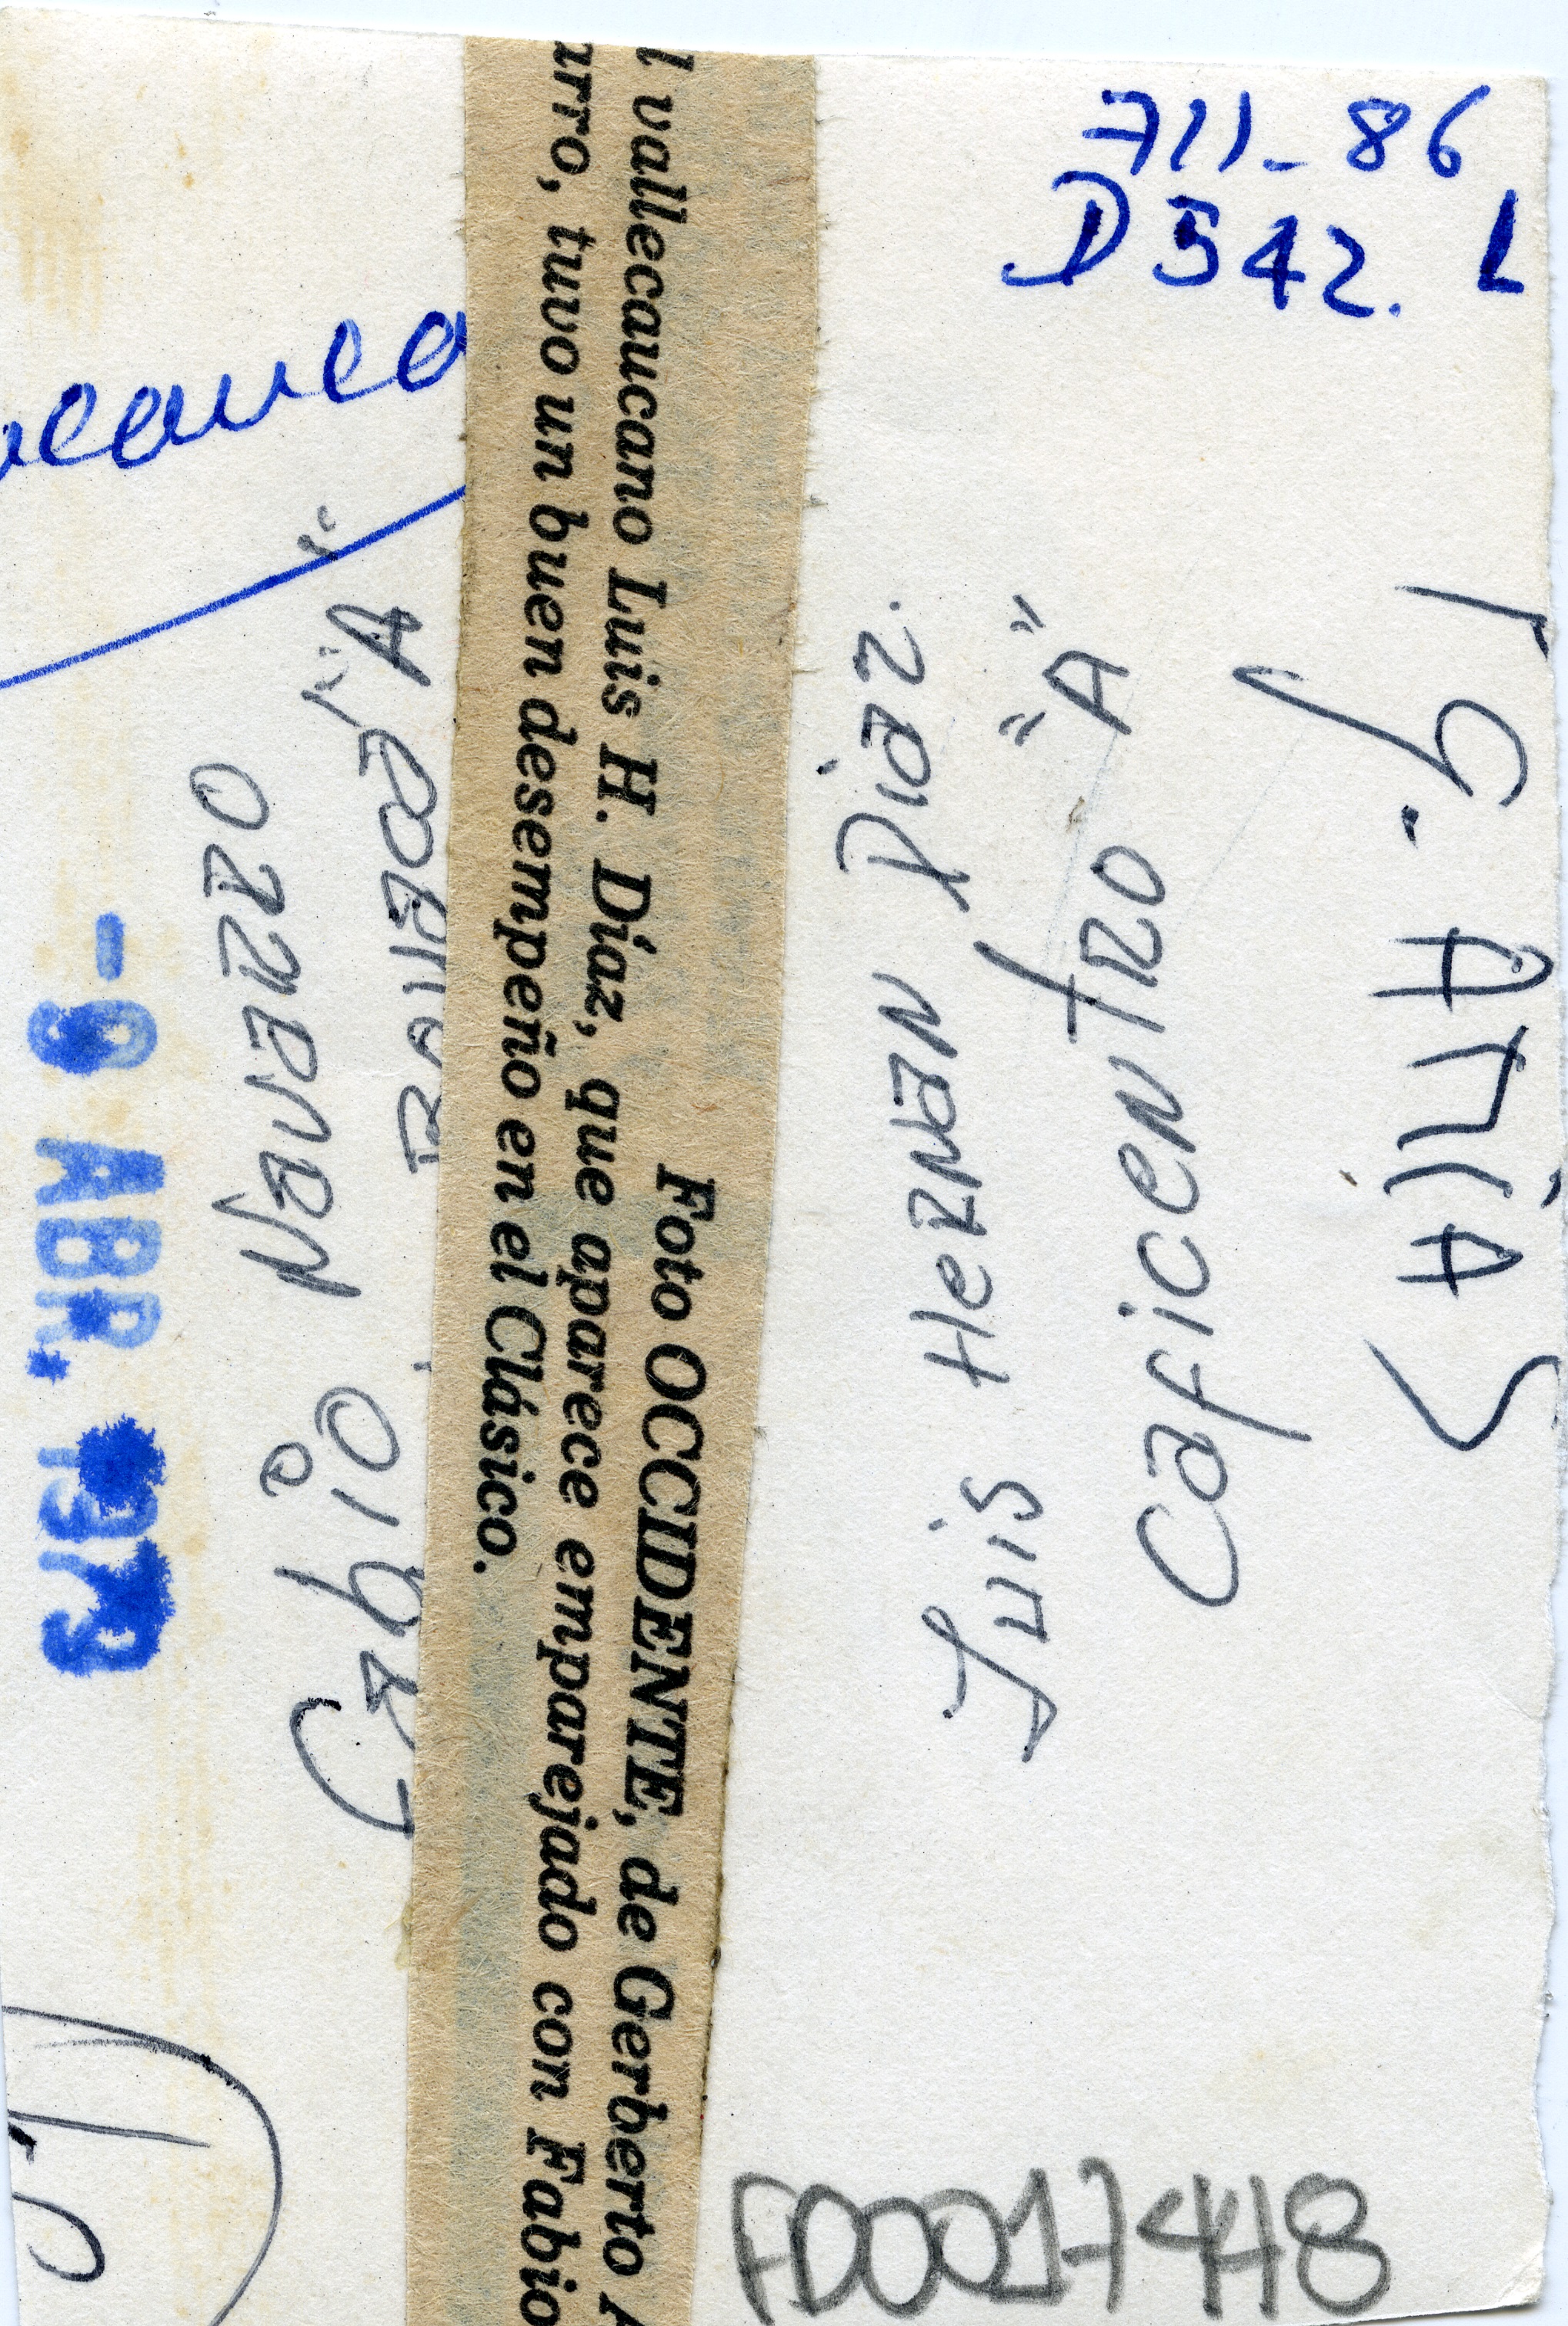 711-86
D 542. L
G. ARIAS
Luis Hernan Diaz.
Caficentro "A"
Foto OCCIDENTE, de Gerberto A
l vallecaucano Luis H. Díaz, que aparece emparejado con Fabio
arro, tuvo un buen desempeño en el Clásico.
Navarro
-9 ABR. 1979
FD0017448